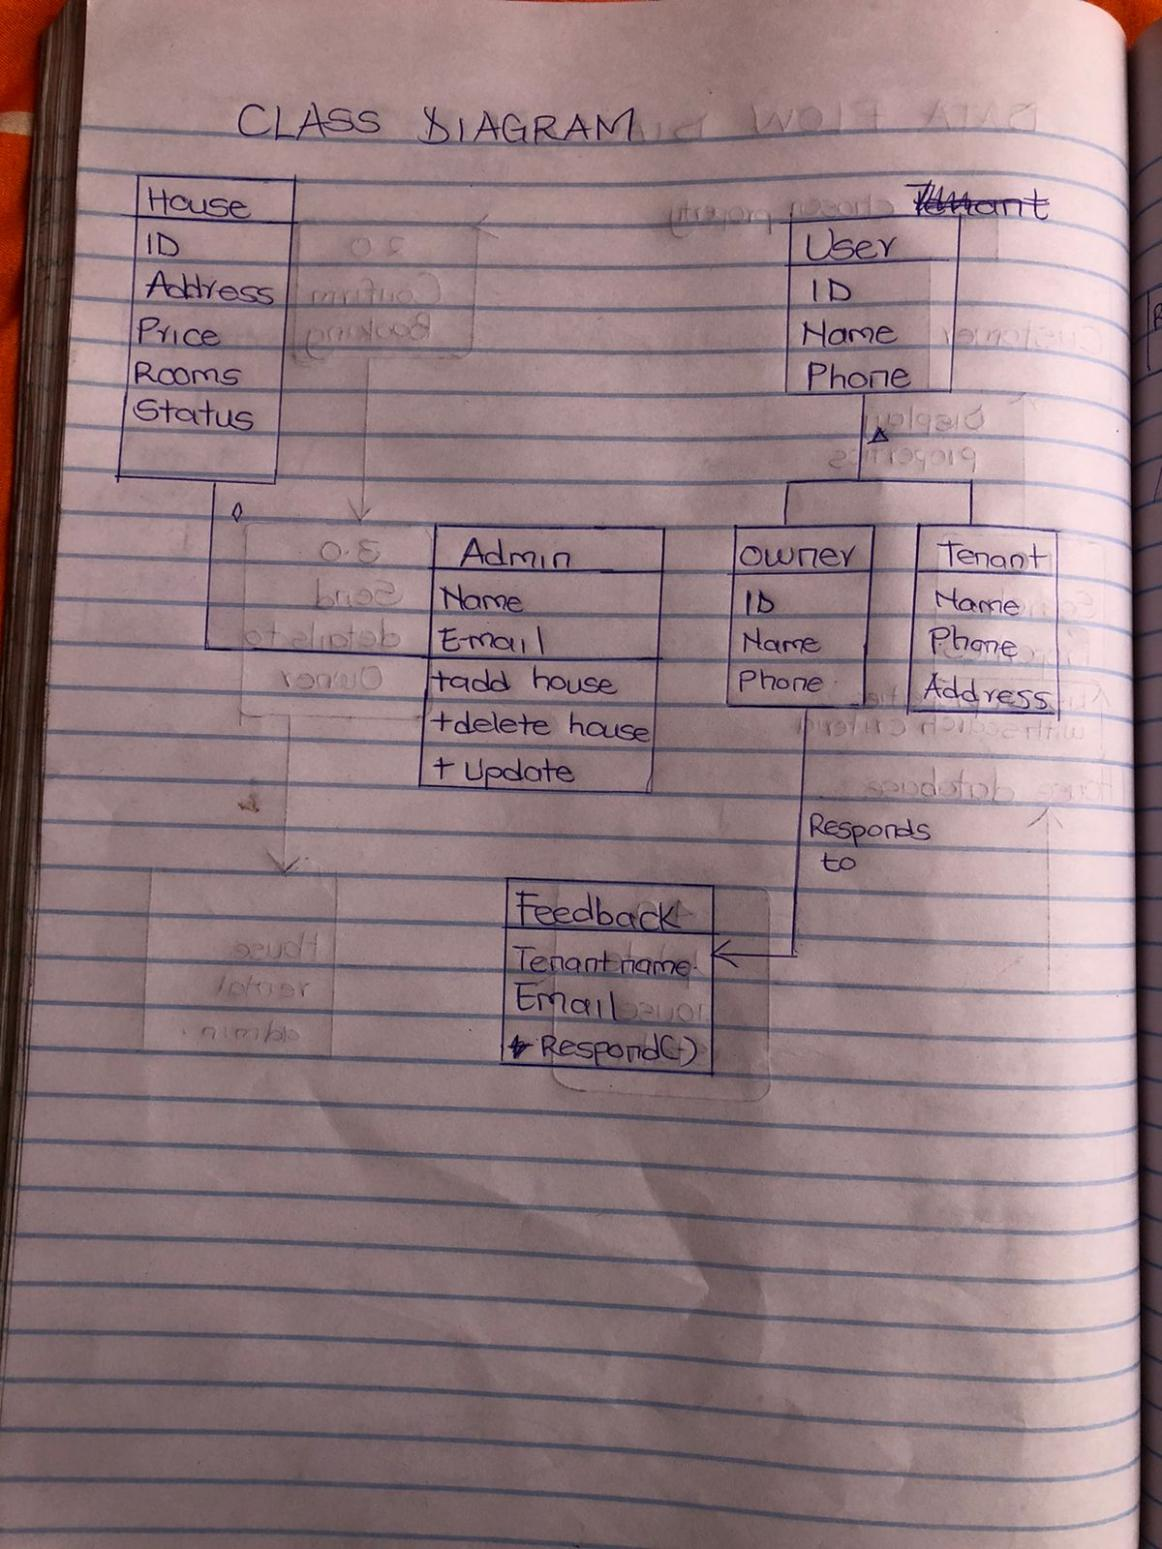 CLASS DIAGRAM
House
ID
Address
Price
Rooms
Status
User
ID
Name
Phone
Admin
Name
E-mail
+add house
+delete house
+ Update
Owner
ID
Name
Phone
Tenant
Name
Phone
Address
Responds
to
Feedback
Tenant name
Email
+ Respond(-)